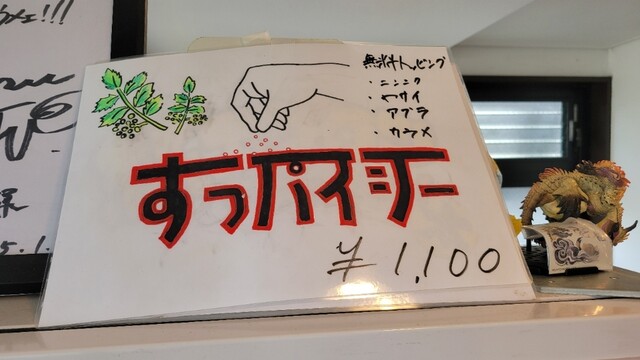 無料トッピング
・ニンニク
・ヤサイ
・アブラ
・カラメ
すっパイシー
¥1,100